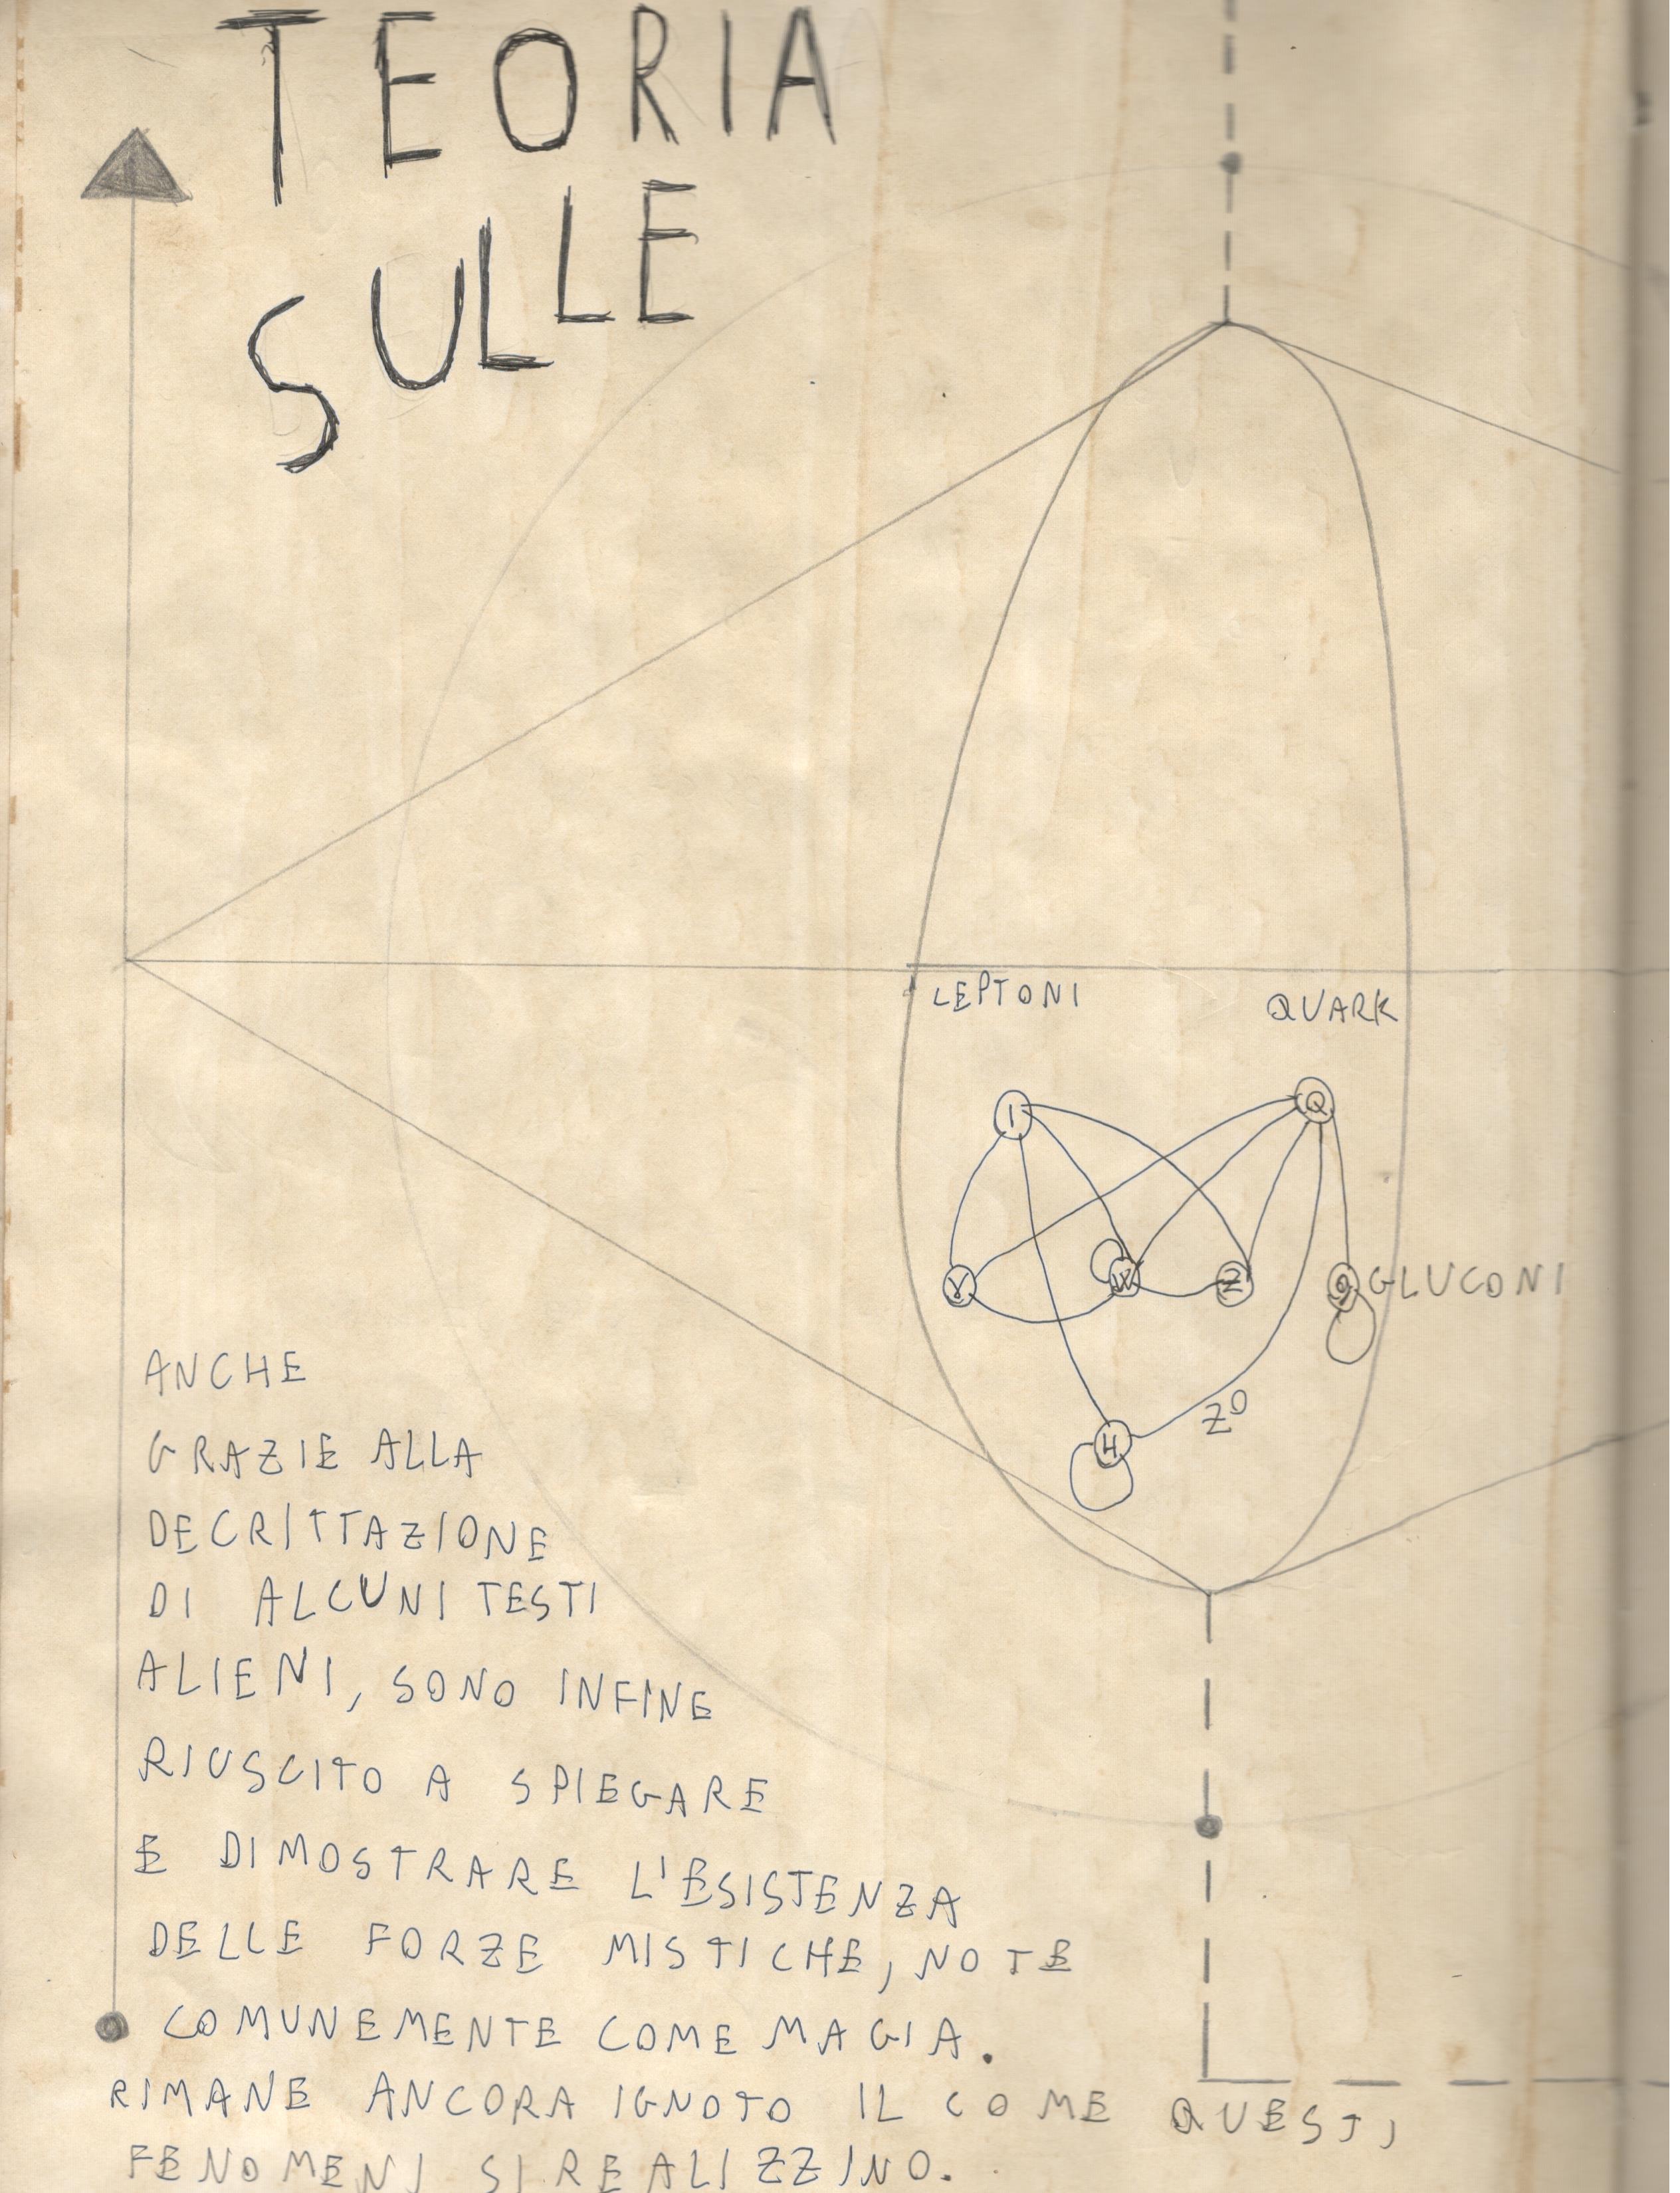 TEORIA
SULLE
LEPTONI
QUARK
l Q
γ W Z g GLUCONI
Z⁰
H
ANCHE
GRAZIE ALLA
DECRITTAZIONE
DI ALCUNI TESTI
ALIENI, SONO INFINE
RIUSCITO A SPIEGARE
E DIMOSTRARE L'ESISTENZA
DELLE FORZE MISTICHE, NOTE
COMUNEMENTE COME MAGIA.
RIMANE ANCORA IGNOTO IL COME QUESTI
FENOMENI SI REALIZZINO.